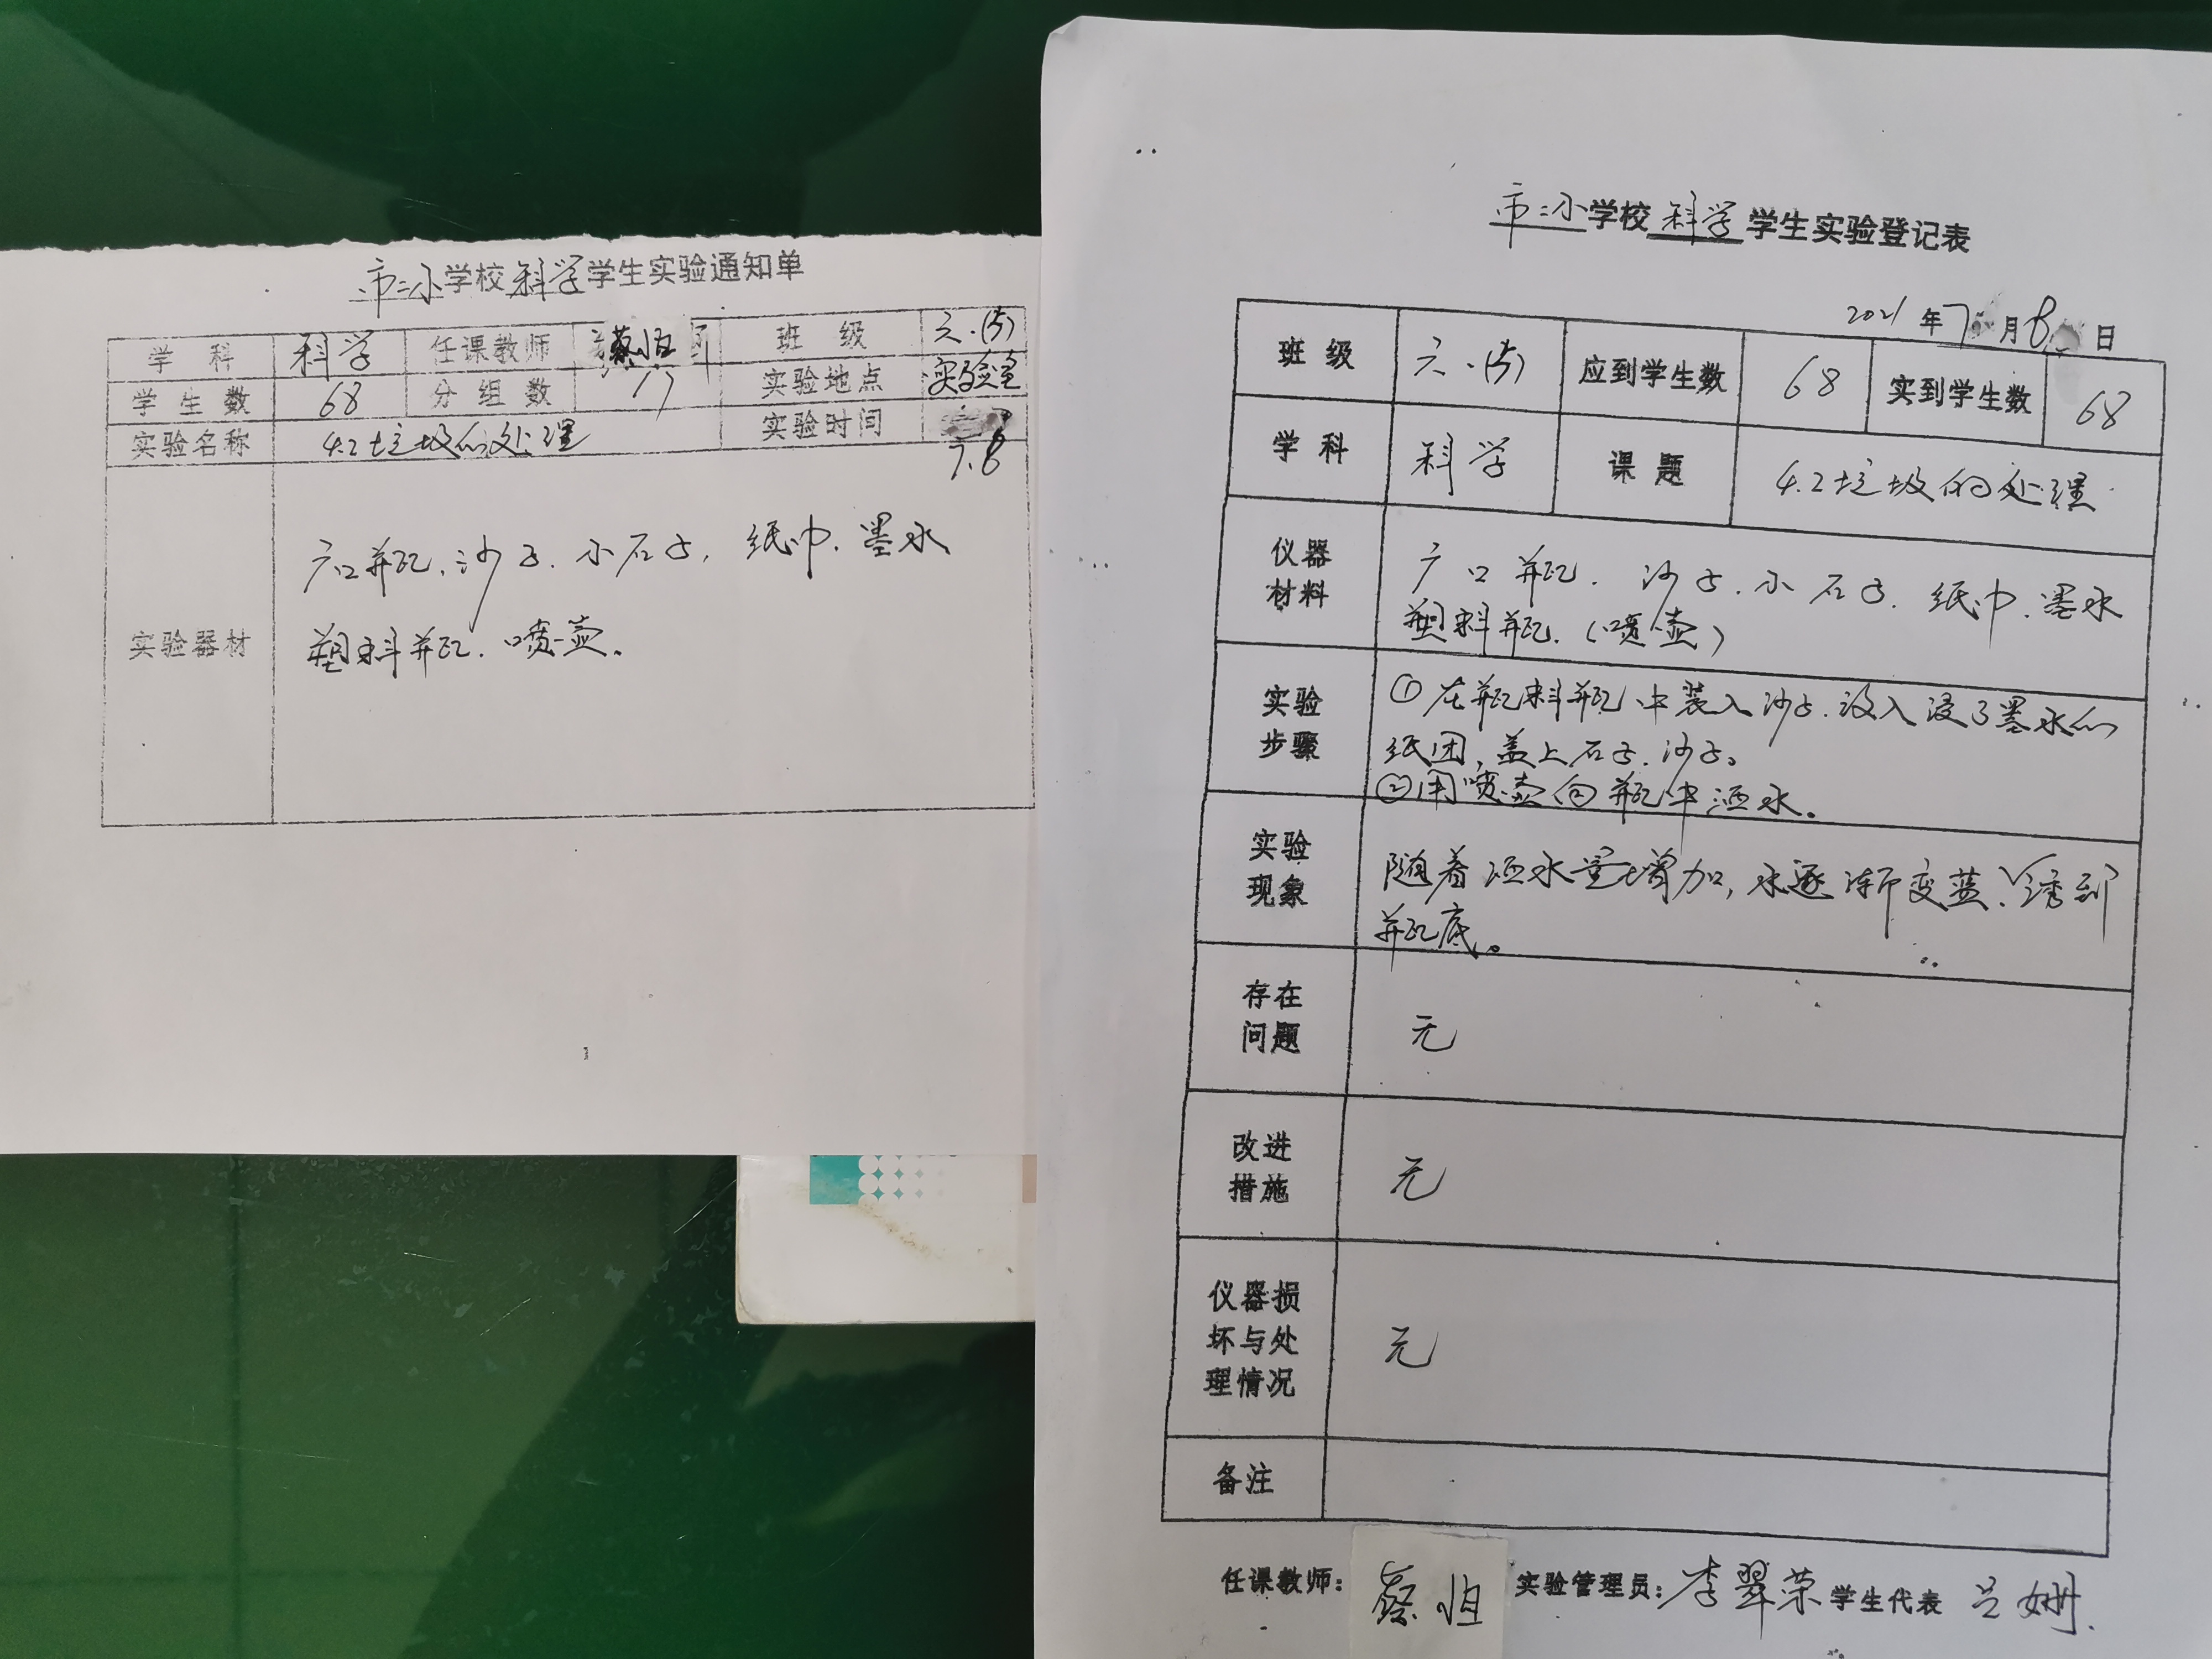 市二小学校科学学生实验通知单
学科 科学 任课教师 蔡恒 班级 六.(5)
学生数 68 分组数 17 实验地点 实验室
实验名称 4.2垃圾的处理 实验时间 7.8
实验器材
广口瓶、沙子、小石子、纸巾、墨水
塑料瓶、喷壶。
1
市二小学校科学学生实验登记表
2021年7月8日
班级 六.(5) 应到学生数 68 实到学生数 68
学科 科学 课题 4.2垃圾的处理
仪器材料
广口瓶、沙子、小石子、纸巾、墨水
塑料瓶、(喷壶)
实验步骤
①在瓶料瓶中装入沙子、放入浸了墨水的
纸团,盖上石子、沙子。
②用喷壶向瓶中洒水。
实验现象
随着洒水量增加,水逐渐变蓝、透到
瓶底。
存在问题
无
改进措施
无
仪器损坏与处理情况
无
备注
任课教师: 蔡恒 实验管理员: 李翠荣 学生代表 吕姗